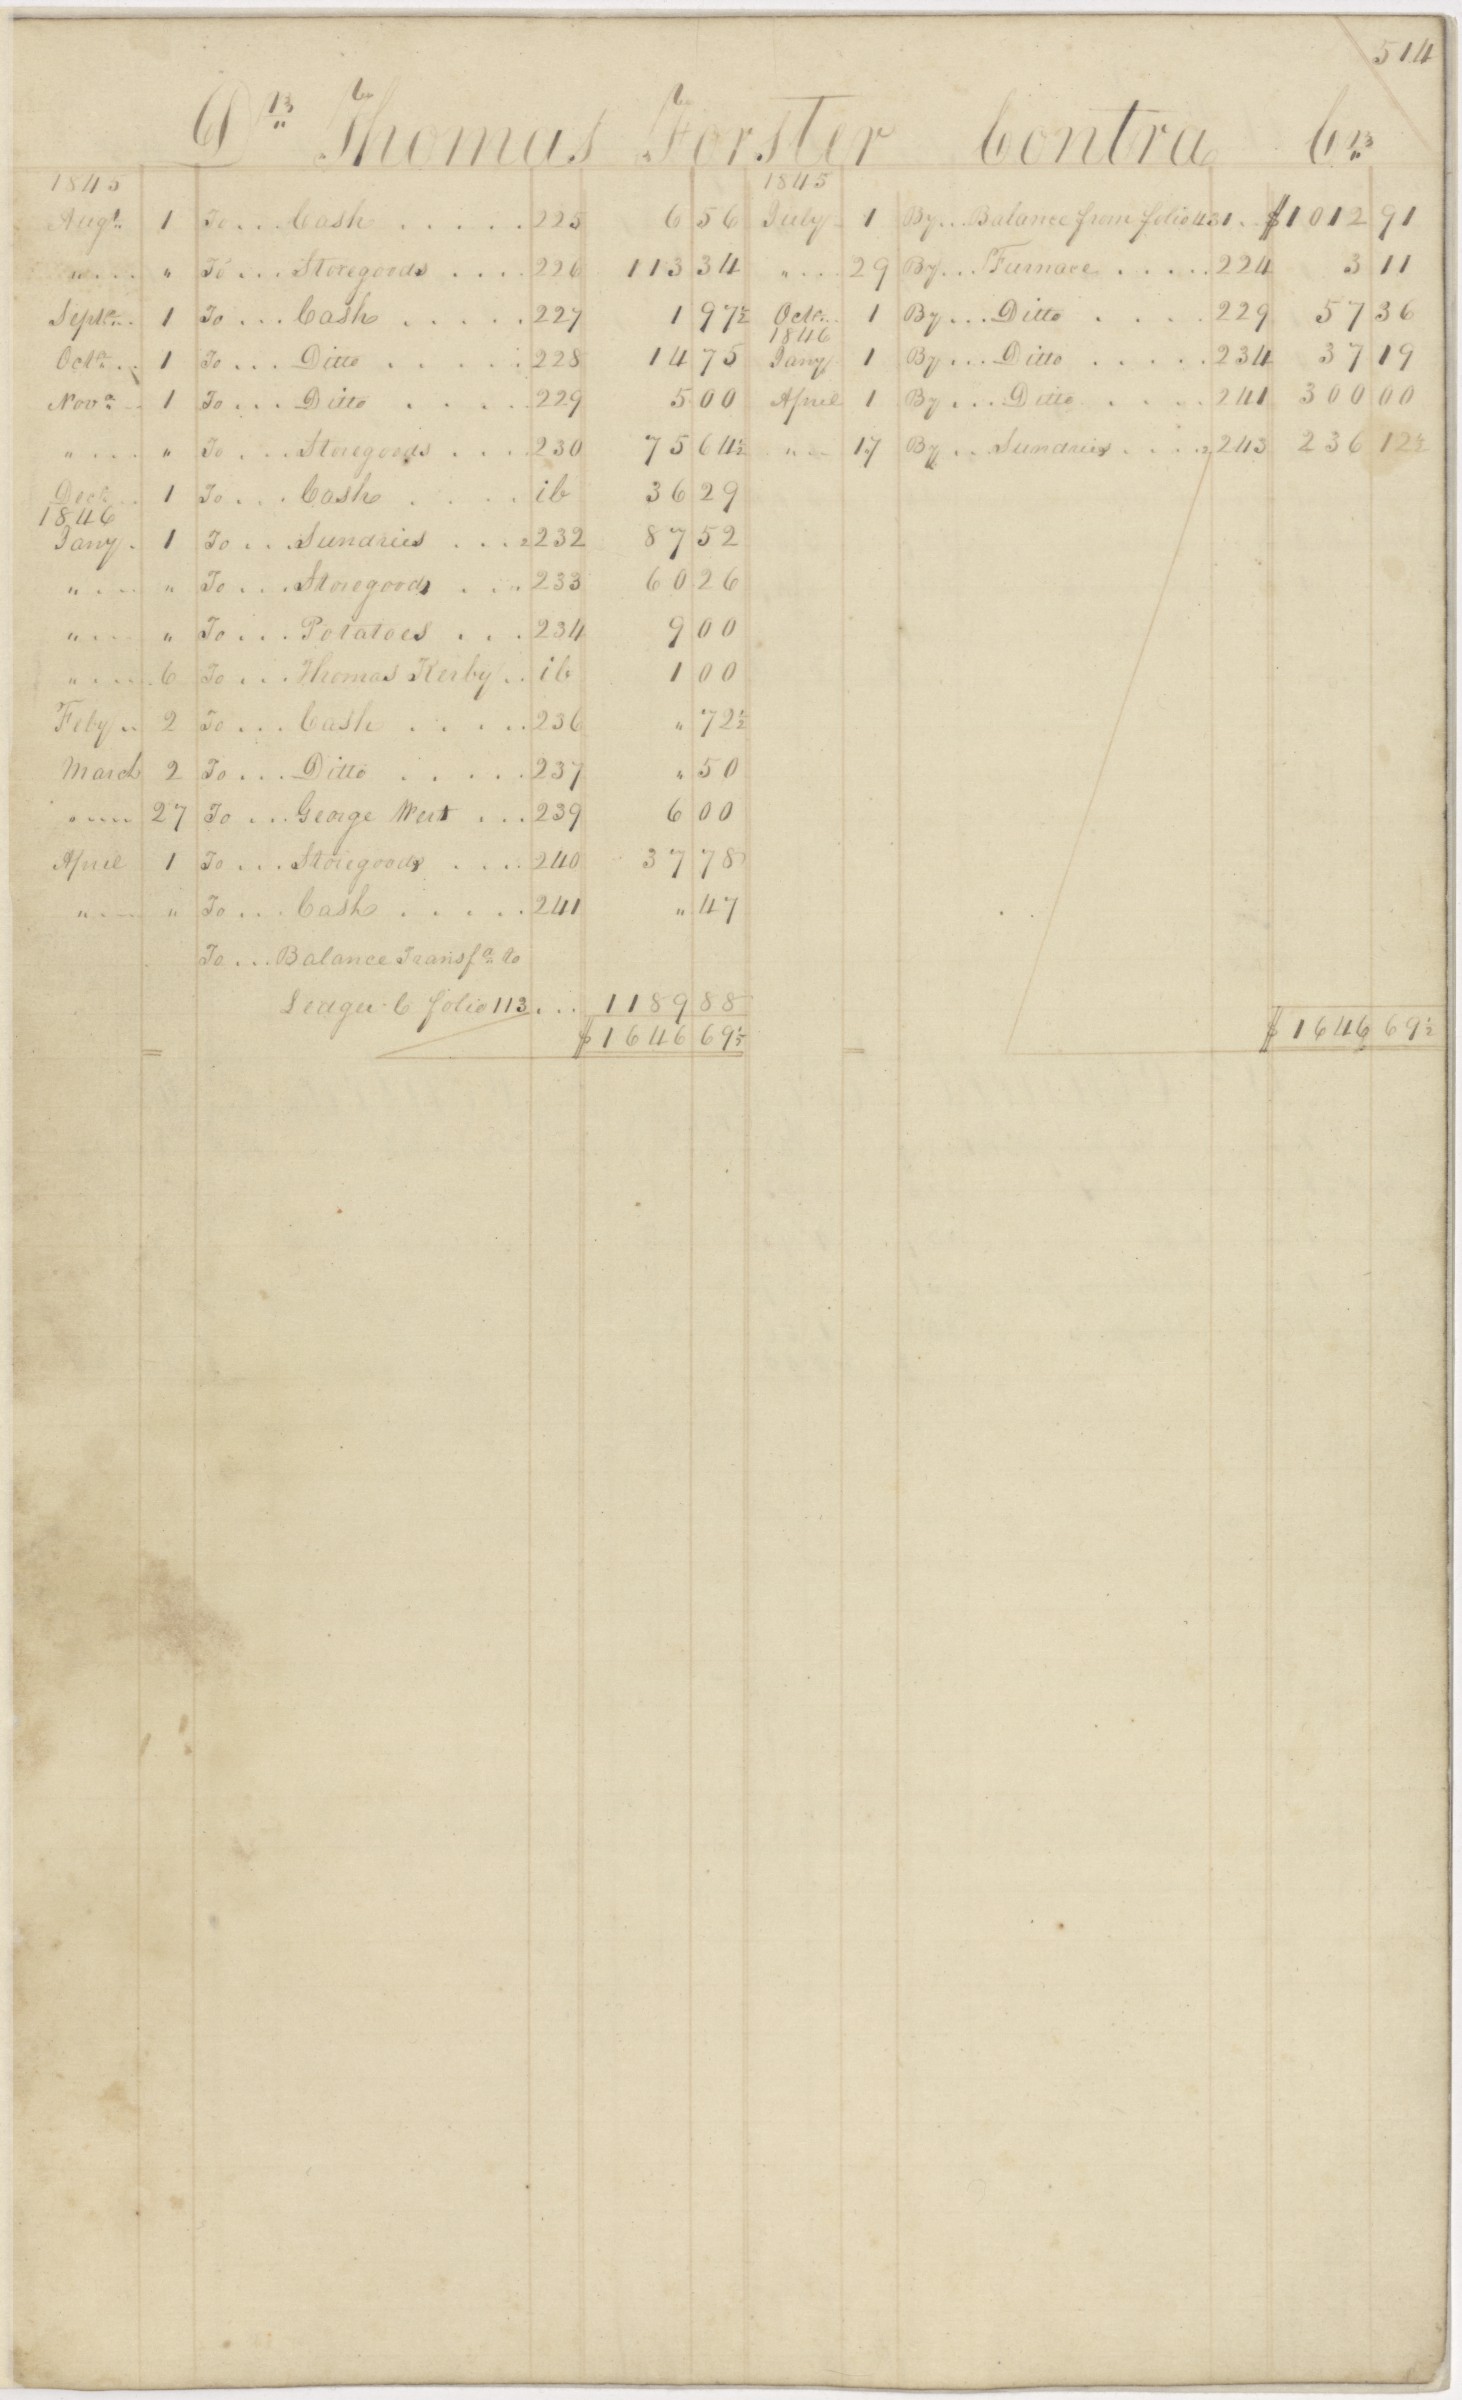 514
Dr. Thomas Forster Contra Cr.
1845
Augt. 1 To... Cash ..... 225 6 56
"... " To... Storegoods .... 226 113 34
Septr. 1 To... Cash ..... 227 1 97½
Octr. 1 To... Ditto ..... 228 14 75
Novr. 1 To... Ditto ..... 229 5 00
".... " To... Storegoods .... 230 75 64½
Decr. 1 To... Cash ..... ib 36 29
1846
Jany. 1 To... Sundries ... 232 87 52
".... " To... Storegoods ... 233 60 26
".... " To... Potatoes ... 234 9 00
".... 6 To... Thomas Kerby .. ib 1 00
Feby.. 2 To... Cash ..... 236 " 72½
March 2 To... Ditto ..... 237 " 50
".... 27 To... George West ... 239 6 00
April 1 To... Storegoods .... 240 37 78
".... " To... Cash ..... 241 " 47
To... Balance Transfr. to
Ledger C folio 113... 1189 88
$1646 69½
1845
July 1 By... Balance from folio 431.. $1012 91
"... 29 By... Furnace ..... 224 3 11
Octr. 1 By... Ditto .... 229 57 36
1846
Jany 1 By... Ditto ..... 234 37 19
April 1 By... Ditto .... 241 300 00
"... 17 By... Sundries .... 243 236 12½
$1646 69½